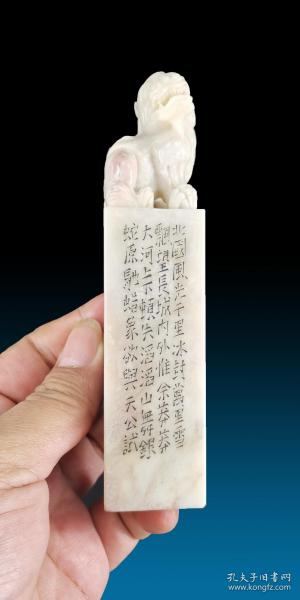 北國風光千里冰封萬里雪
飄望長城內外惟余莽莽
大河上下頓失滔滔山舞銀
蛇原馳蜡象欲與天公試
孔夫子旧书网
www.kongfz.com